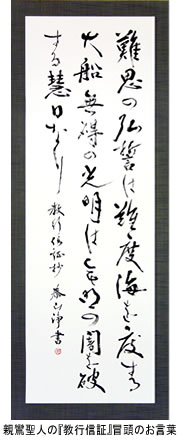 難思の弘誓は難度海を度する
大船無碍の光明は无明の闇を破
する慧日なり
教行信証抄
親鸞聖人の『教行信証』冒頭のお言葉